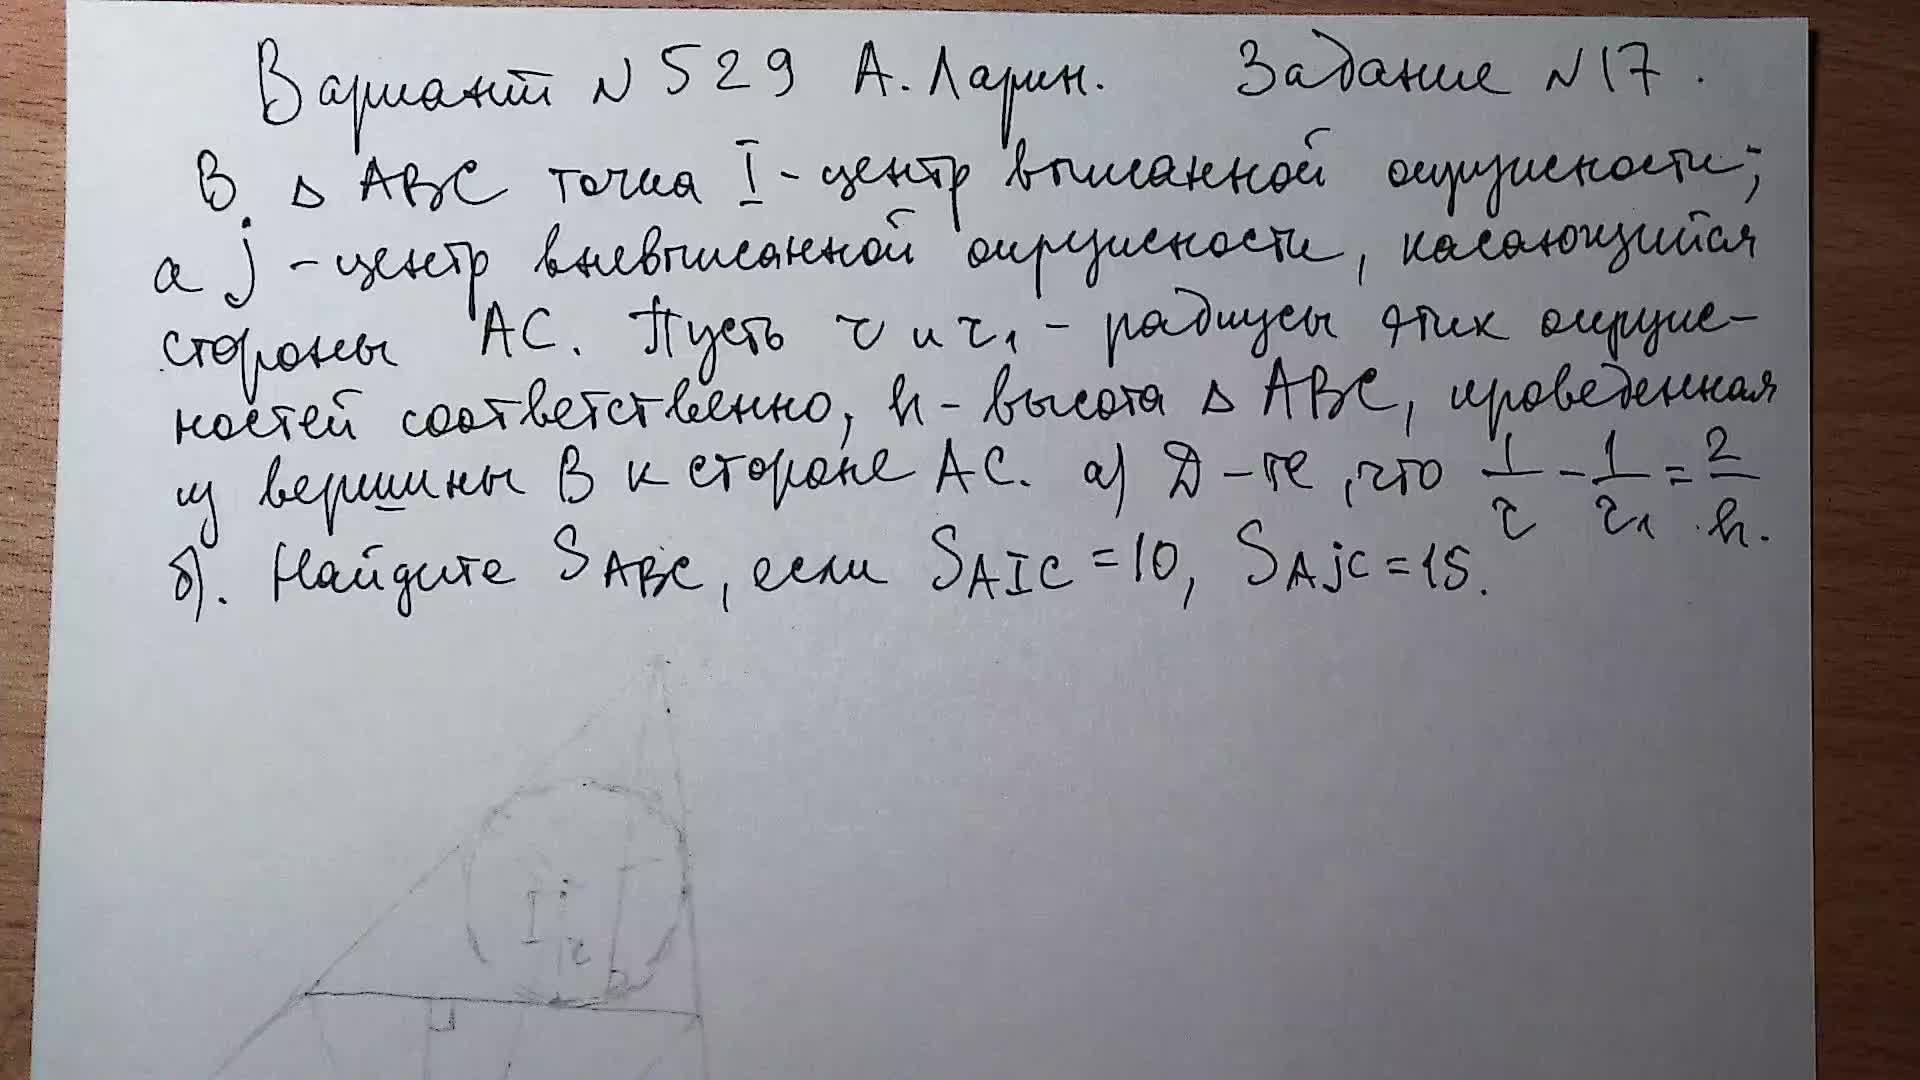 Вариант N 529 А. Ларин. Задание N17.
В △ ABC точка I - центр вписанной окружности;
а j - центр вневписанной окружности, касающийся
стороны AC. Пусть r и r₁ - радиусы этих окруж-
ностей соответственно, h - высота △ ABC, проведенная
из вершины B к стороне AC. а) Д-те, что 1/r - 1/r₁ = 2/h.
б). Найдите S_ABC, если S_AIC = 10, S_AjC = 15.
I
r